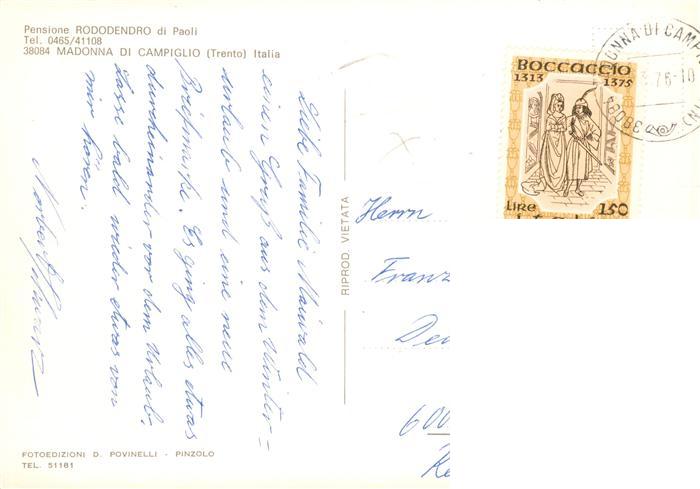 Pensione RODODENDRO di Paoli
Tel. 0465/41108
38084 MADONNA DI CAMPIGLIO (Trento) Italia
Liebe Familie Maiwald
einen Gruß aus dem Winter=
urlaub und eine neue
Briefmarke. Es ging alles etwas
durcheinander vor dem Urlaub.
Lasse bald wieder etwas von
mir hören.
Norbert
FOTOEDIZIONI D. POVINELLI - PINZOLO
TEL. 51181
RIPROD. VIETATA
BOCCACCIO
1313 1375
LIRE 150
NNA DI CAMP
76-10
38084
Herrn
Franz
De
600